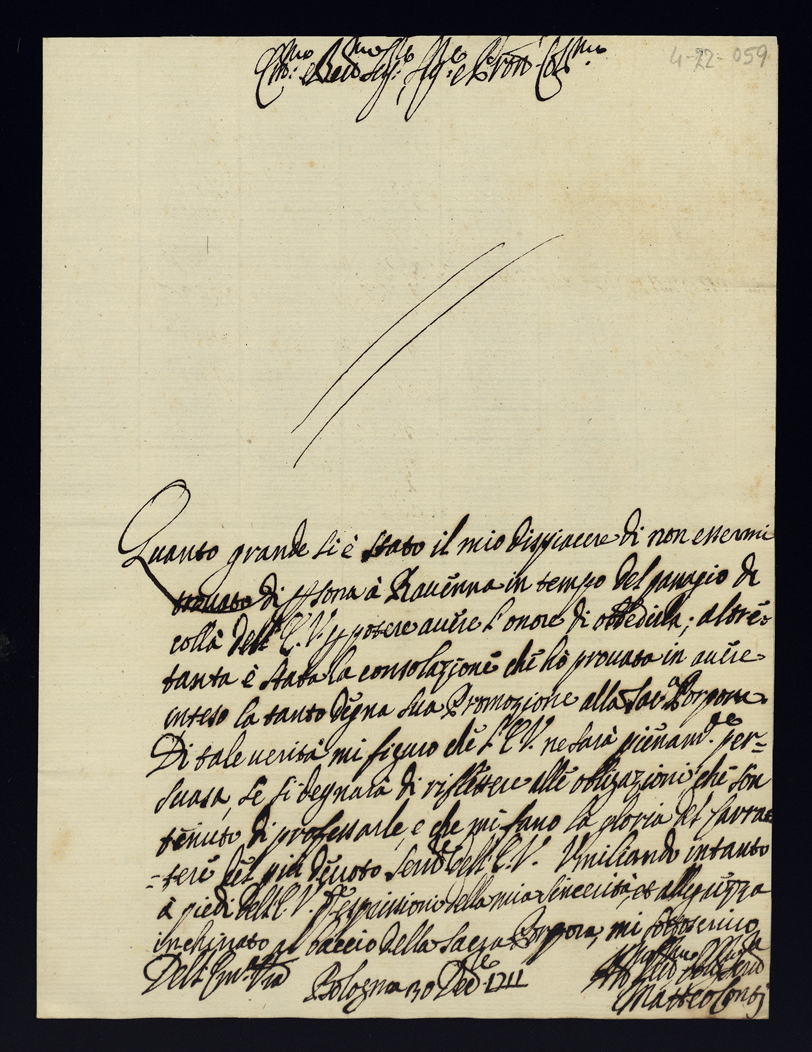 4-22-059
Em:mo e Rev:mo Sig:re, Sig:re e Pron Col:mo
Quanto grande si è stato il mio dispiacere di non essermi
trovato di psona à Ravenna in tempo del passagio di
colla dell'E.V. p potere avere l'onore di obbedirla; altret-
tanta è stata la consolazione che hò provata in avere
inteso la tanto degna sua Promozione alla Sac:a Porpora.
Di tale verità mi figuro che l'E.V. ne sarà pienam:te per-
suasa, se si degnarà di riflettere alle obligazioni che son
tenuto di professarle, e che mi fano la gloria del carrat-
-tere del più devoto Ser:re dell'E.V. Umiliando intanto
à piedi dell'E.V. l'espressioni della mia sincerità, et alle
inchinato al baccio della Sacra Porpora, mi sottoscrivo
Dell'Em:a V:ra
Bologna 30 Xbre 1711
Matteo Conti